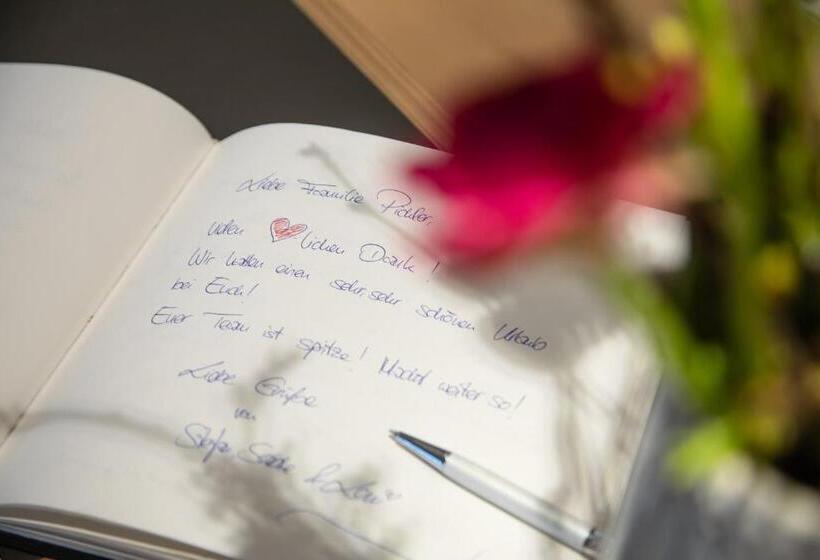 Liebe Familie Pichler,
vielen ❤lichen Dank!
Wir hatten einen sehr, sehr schönen Urlaub
bei Euch!
Euer Team ist spitze! Macht weiter so!
Liebe Grüße
von